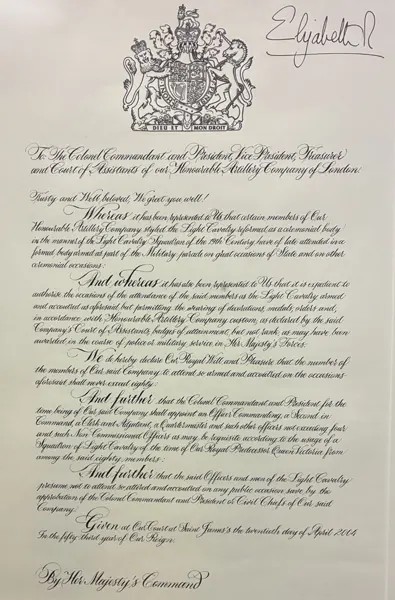 Elizabeth R
DIEU ET MON DROIT
To The Colonel Commandant and President, Vice President, Treasurer
and Court of Assistants of our Honourable Artillery Company of London.
Trusty and Well beloved, We greet you well!
Whereas it has been represented to Us that certain members of Our
Honourable Artillery Company styled the Light Cavalry reformed as a ceremonial body
in the manner of the Light Cavalry Squadron of the 19th Century have of late attended in a
formed body armed as part of the Military parade on grand occasions of State and on other
ceremonial occasions:
And whereas it has also been represented to Us that it is expedient to
authorise the occasions of the attendance of the said members as the Light Cavalry armed
and accoutred as aforesaid but permitting the wearing of decorations, medals, orders and,
in accordance with Honourable Artillery Company custom, as declared by the said
Company's Court of Assistants, badges of attainment, but not rank, as may have been
awarded in the course of police or military service in Her Majesty's Forces:
We do hereby declare Our Royal Will and Pleasure that the number of
the members of Our said company to attend so armed and accoutred on the occasions
aforesaid shall never exceed eighty:
And further that the Colonel Commandant and President for the
time being of Our said Company shall appoint an Officer Commanding, a Second in
Command, a Clerk and Adjutant, a Quartermaster and such other officers not exceeding four
and such Non Commissioned Officers as may be requisite according to the usage of a
Squadron of Light Cavalry of the time of Our Royal Predecessor Queen Victoria from
among the said eighty members:
And further that the said Officers and men of the Light Cavalry
presume not to attend so attired and accoutred on any public occasion save by the
approbation of the Colonel Commandant and President or Civil Chiefs of Our said
Company.
Given at Our Court at Saint James's the twentieth day of April 2004
In the fifty-third year of Our Reign.
By Her Majesty's Command